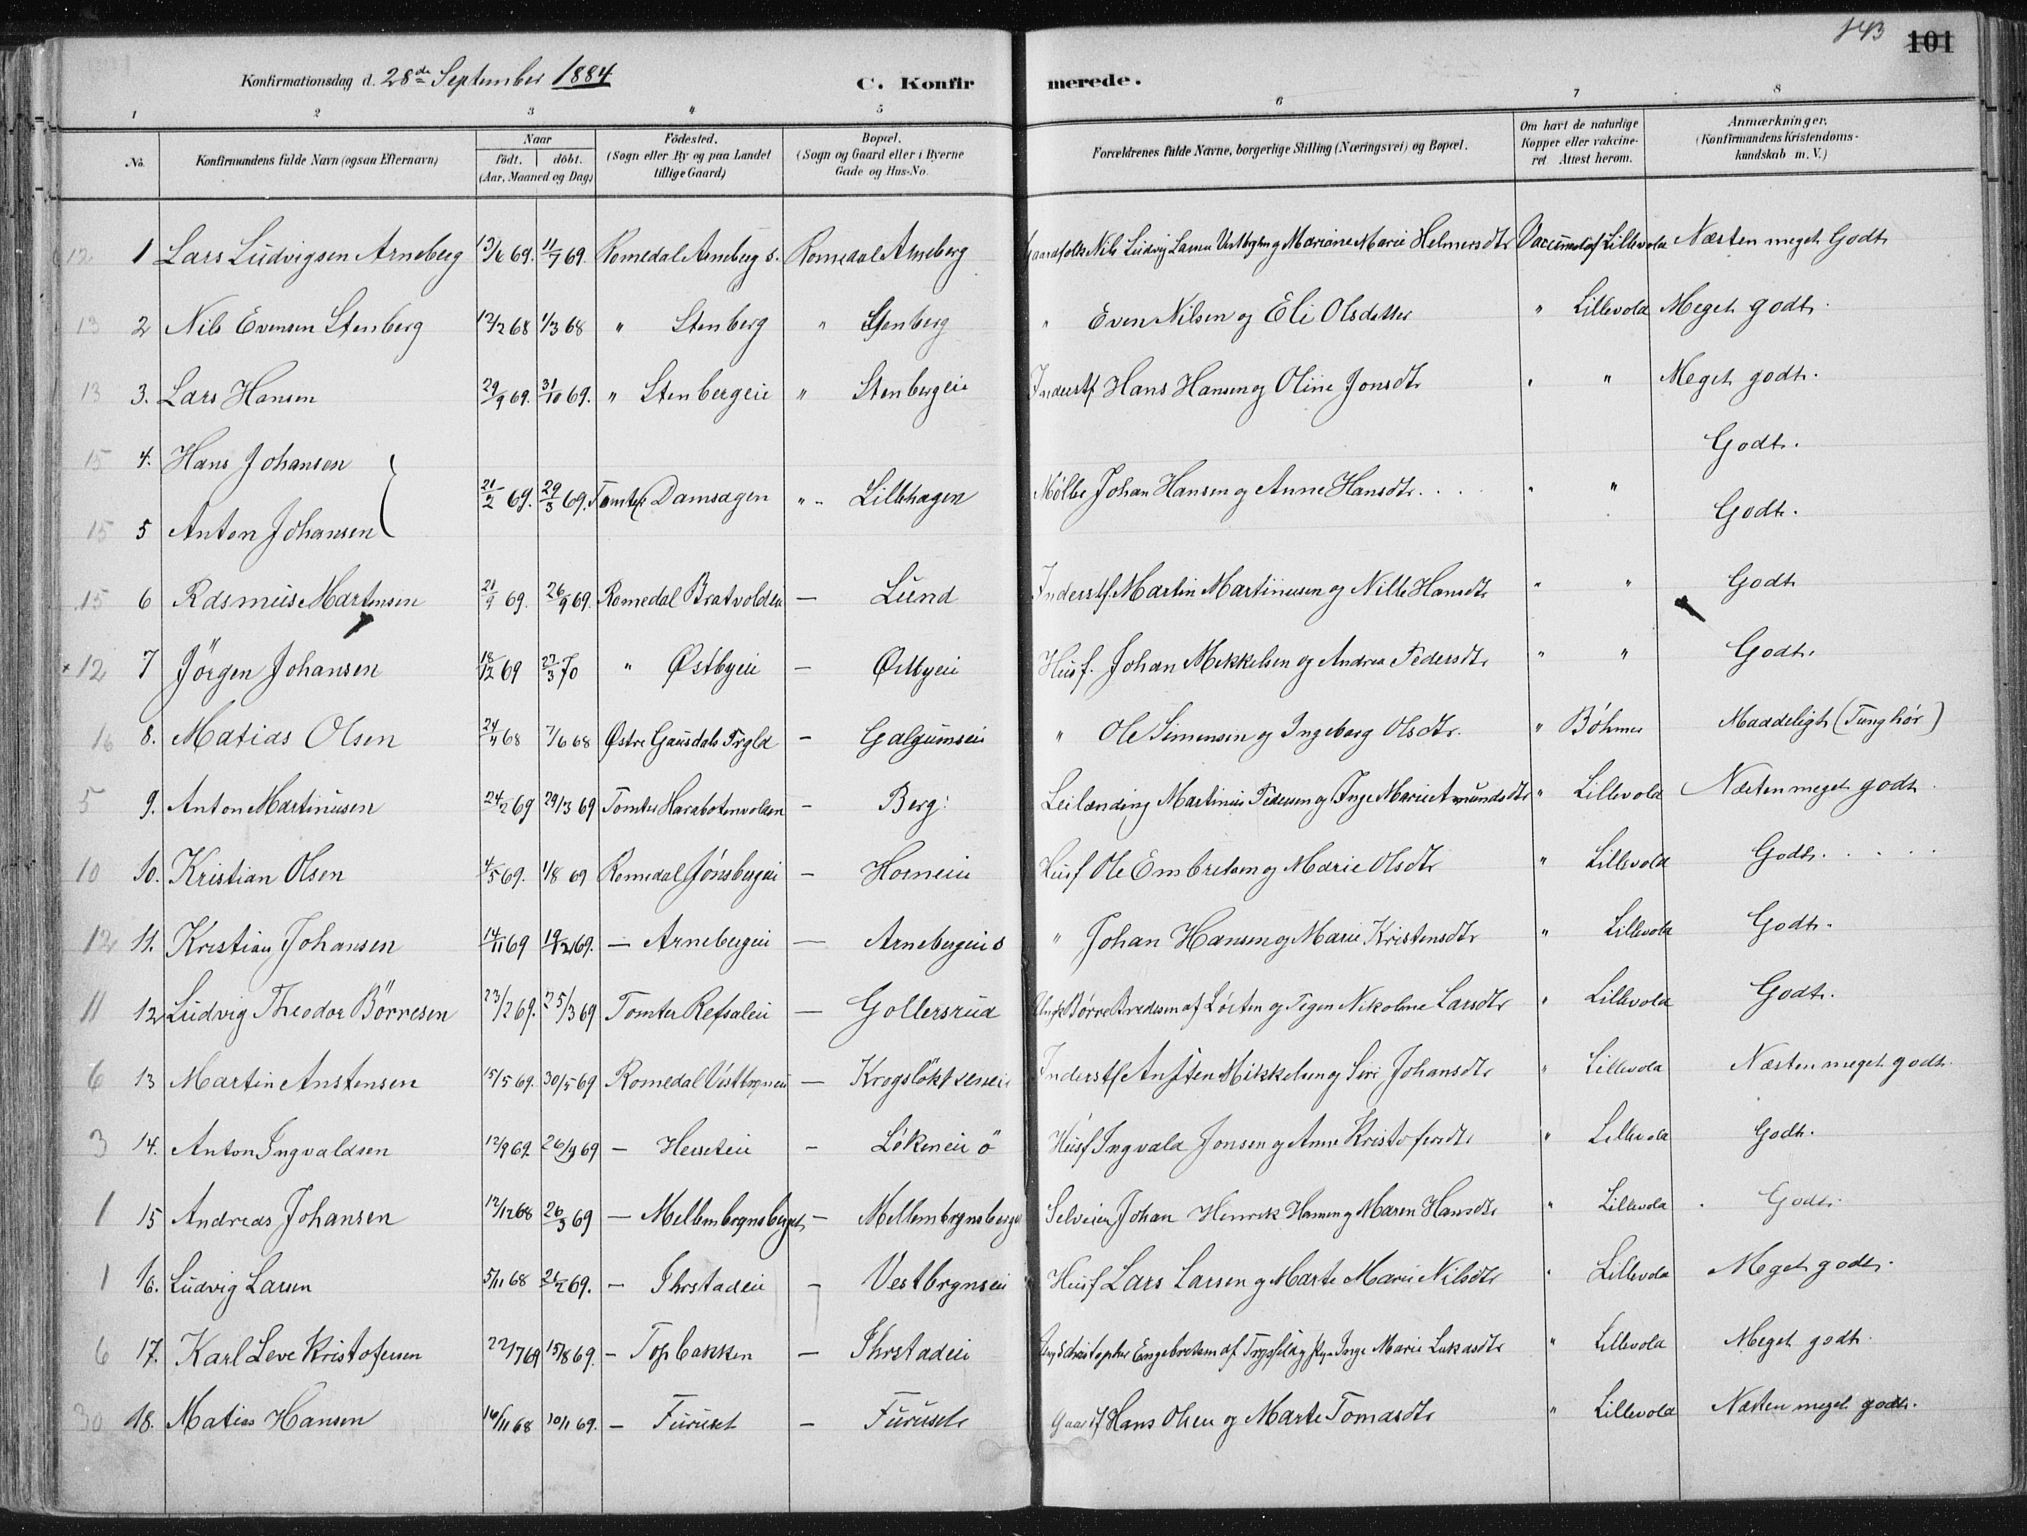 143 101
Konfirmationsdag d. 28de September 1884 C. Konfirmerede.
1 2 3 4 5 6 7 8
No. Konfirmandens fulde Navn (ogsaa Efternavn) Naar födt. döbt. (Aar, Maaned og Dag) Födested. (Sogn eller By og paa Landet tillige Gaard) Bopæl. (Sogn og Gaard eller i Byerne Gade og Hus-No. Forældrenes fulde Navne, borgerlige Stilling (Næringsvei) og Bopæl. Om havt de naturlige Kopper eller vakcineret Attest herom. Anmærkninger. (Konfirmandens Kristendomskundskab m. V.)
12 1 Lars Ludvigsen Arneberg 13/6 69. 11/7 69. Romedal Arneberg s. Romedal Arneberg Gaardfolk Nils Ludvig Larsen og Mariane Marie Helmersdtr Vaccineret af Lillevold Næsten meget Godt
13 2 Nils Evensen Stenberg 12/2 68 1/3 68 " Stenberg " Stenberg " Even Nilsen og Eli Olsdatter " Lillevold Meget godt.
13 3. Lars Hansen 29/9 69. 31/10 69. " Stenbergeie " Stenbergeie Inderstf Hans Hansen og Oline Jonsdtr " " Meget godt.
15 4. Hans Johansen Godt.
21/2 69. 29/3 69. Tomter Damsagen " Lillehagen Mölle Johan Hansen og Anne Hansdtr. " "
15 5 Anton Johansen Godt.
15 6 Rasmus Martinsen 21/9 69. 26/9 69. Romedal Bratvoldeie — Lund Inderstf. Martin Martinusen og Nille Hansdtr " " Godt
12 7 Jörgen Johansen 18/12 69 27/3 70 " Østbyeie — Østbyeie Husf. Johan Mikkelsen og Andrea Pedersdtr " " Godt.
16 8. Matias Olsen 24/4 68 7/6 68 Østre Gausdals — Galgumseie " Ole Simensen og Ingeborg Olsdtr. " Böhmer Maadeligt (Tunghör)
5 9. Anton Martinusen 24/2 69 29/3 69 Tomter Harabotenvolden — Berg Leilænding Martinus Pedersen og Inge Marie Amundsdtr " Lillevold Næsten meget godt.
10 10. Kristian Olsen 4/5 69. 1/8 69 Romedal Jönsbergeie — Horneie Husf Ole Embretsen og Marie Olsdtr " Lillevold Godt.
12 11. Kristian Johansen 14/11 69 19/12 69. — Arnebergeie — Arnebergeie s " Johan Hansen og Marie Kristensdtr " Lillevold Godt.
11 12 Ludvig Theodor Börresen 23/2 69. 25/3 69 Tomter Refsaleie — Gollersrud Ungk Börre Bredesen af Löiten og Pigen Nikoline Larsdtr " Lillevold Godt.
6 13 Martin Anstensen 15/5 69. 30/5 69 Romedal Vestbyneie — Inderstf Ansten Mikkelsen og Siri Johansdtr " Lillevold Næsten meget godt.
3 14. Anton Ingvaldsen 12/9 69. 26/9 69 — — Lökeneie ö Husf Ingvald Jonsen og Anne Kristofersdtr " Lillevold Godt.
1 15 Andreas Johansen 12/12 68 26/3 69 — Mellembrynsberget — Mellembrynsberget Selveier Johan Henrik Hansen og Maren Hansdtr " Lillevold Godt.
1 16. Ludvig Larsen 5/11 68 21/2 69. — Ihrstadeie — Vestbrynseie Husf Lars Larsen og Marte Marie Nilsdtr " Lillevold Meget godt.
6 17. Karl Leve Kristofersen 22/7 69 15/8 69. — Topbakken — Ihrstadeie Christopher Engebretsen af Trysil og Inge Marie Lukasdtr " Lillevold Meget godt.
30 18. Matias Hansen 16/11 68 10/1 69. — Furuset — Furuset Gaardf Hans Olsen og Marte Tomasdtr " Lillevold Næsten meget godt.